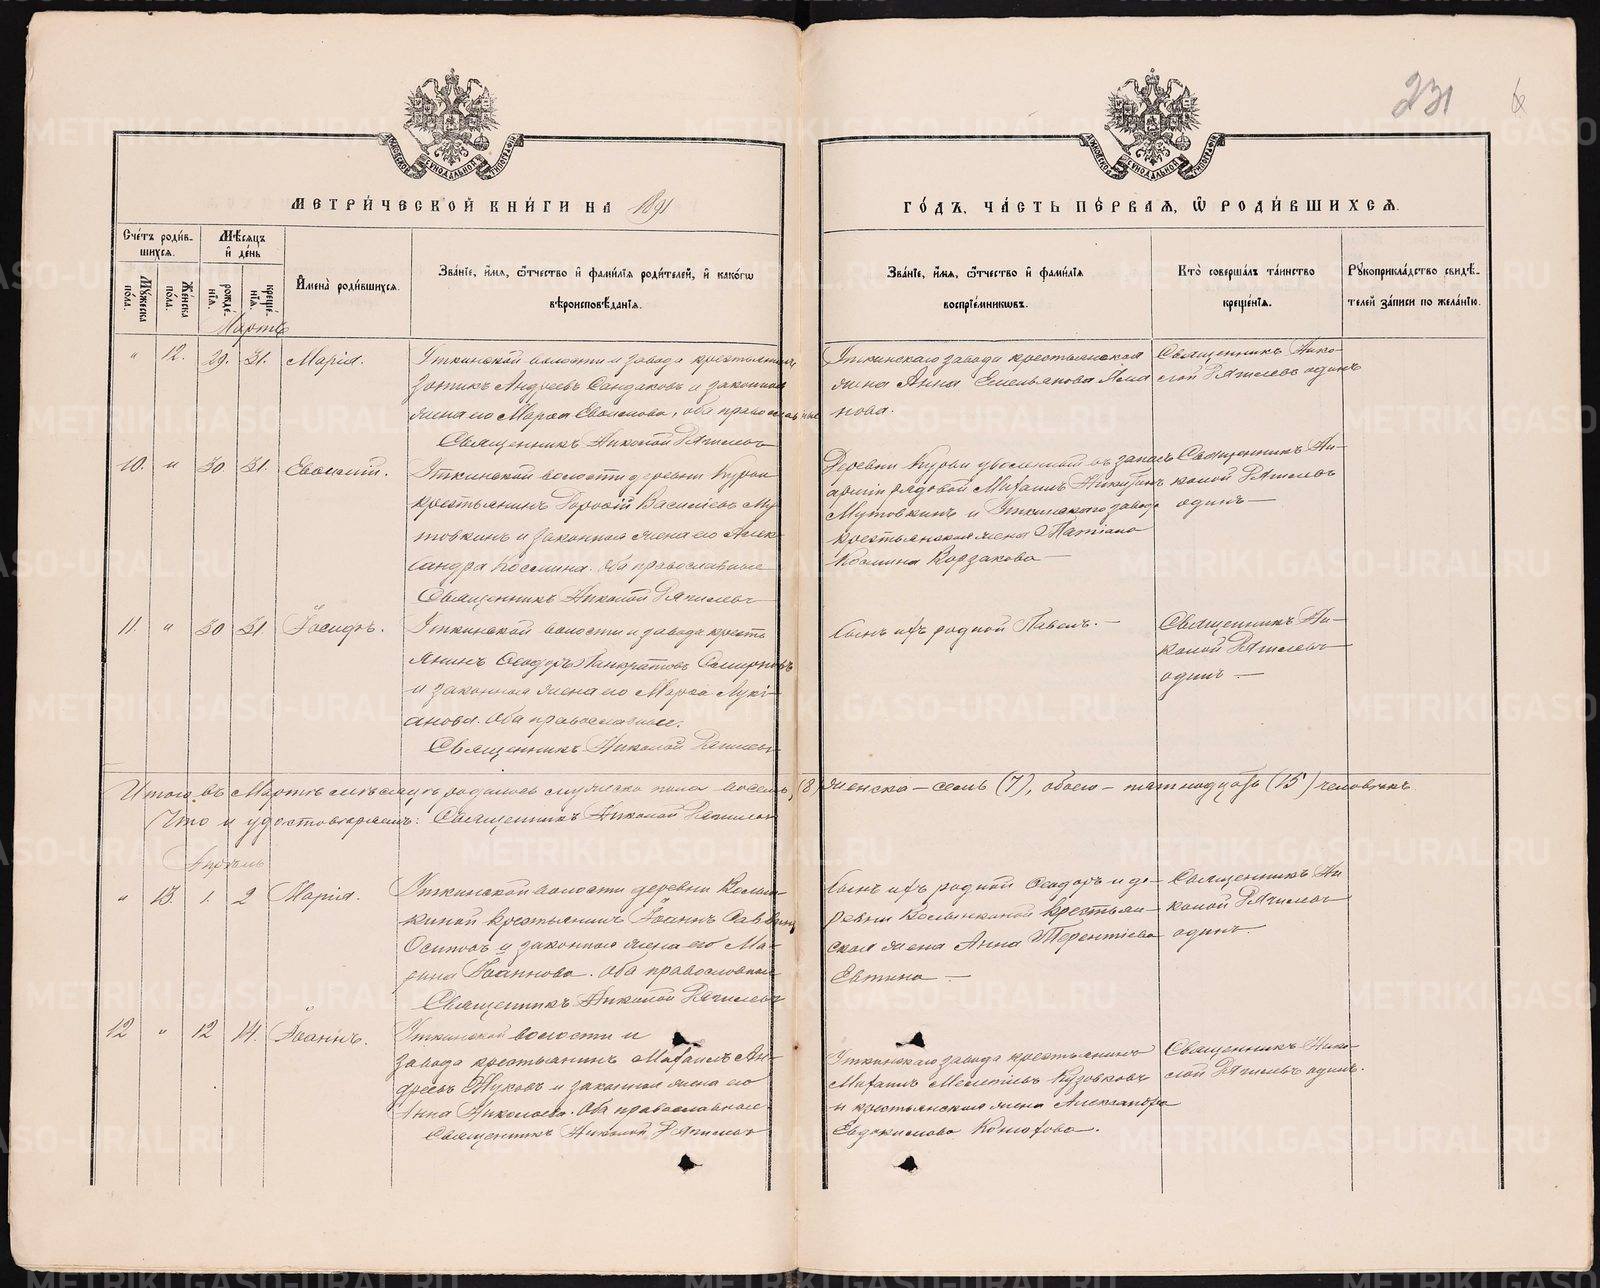 231
МЕТРИЧЕСКОЙ КНИГИ НА 1891
ГОДЪ, ЧАСТЬ ПЕРВАЯ, Ѡ РОДИВШИХСЯ.
Счетъ родив-
шихся.
Мѣсяцъ
и день
Имена родившихся.
Званіе, имя, ѿчество и фамилія родителей, и какогѡ
вѣроисповѣданія.
Званіе, имя, ѿчество и фамилія
воспріемниковъ.
Кто совершалъ таинство
крещенія.
Рꙋкоприкладство свидѣ-
телей записи по желанію.
Мꙋжеска
пола.
Женска
пола.
рожде-
нія.
креще-
нія.
Мартъ
" 12. 29. 31. Марія.
Уткинской волости и завода крестьянинъ
Зотикъ Андреевъ Сандаковъ и законная
жена его Марѳа Евѳимова, оба православные
Священникъ Николай
Уткинскаго завода крестьянская
жена Анна Емельянова
нова.
Священникъ Нико-
лай одинъ
10. " 30 31. Евѳимій.
Уткинской волости деревни Курьи
крестьянинъ Василіевъ Му-
товкинъ и законная жена его Алек-
сандра Космина. Оба православные
Священникъ Николай
Деревни Курьи уволенный въ запасъ
арміи рядовой Михаилъ Никитинъ
Мутовкинъ и Уткинскаго завода
крестьянская жена Татіана
Космина Корзакова
Священникъ Ни-
колай
одинъ
11. " 30 31 Іосифъ.
Уткинской волости и завода кресть-
янинъ Ѳеодоръ Панкратовъ Смирновъ
и законная жена его Марѳа Луки-
анова. Оба православные.
Священникъ Николай
Сынъ ихъ родной Павелъ.
Священникъ Ни-
колай
одинъ
Итого въ Мартѣ мѣсяцѣ родилось мужеска пола восемь (8) женска – семь (7), обоего – пятнадцать (15) человѣкъ
Что и удостовѣряемъ: Священникъ Николай
Апрѣль
" 13. 1. 2 Марія.
Уткинской волости деревни
крестьянинъ Іоаннъ Саввинъ
Осиповъ и законная жена его Ма-
рина Іоаннова. Оба православные
Священникъ Николай
Сынъ ихъ родной Ѳеодоръ и де-
ревни крестьян-
ская жена Анна Терентіева
Евтина
Священникъ Ни-
колай
одинъ.
12 " 12 14. Іоаннъ.
Уткинской волости и
завода крестьянинъ Михаилъ Ан-
дреевъ Жуковъ и законная жена его
Анна Николаева. Оба православные.
Священникъ Николай
Уткинскаго завода крестьянинъ
Михаилъ Мелетіевъ Кузовковъ
и крестьянская жена Александра
Евдокимова Конюхова.
Священникъ Нико-
лай одинъ.
METRIKI.GASO-URAL.RU